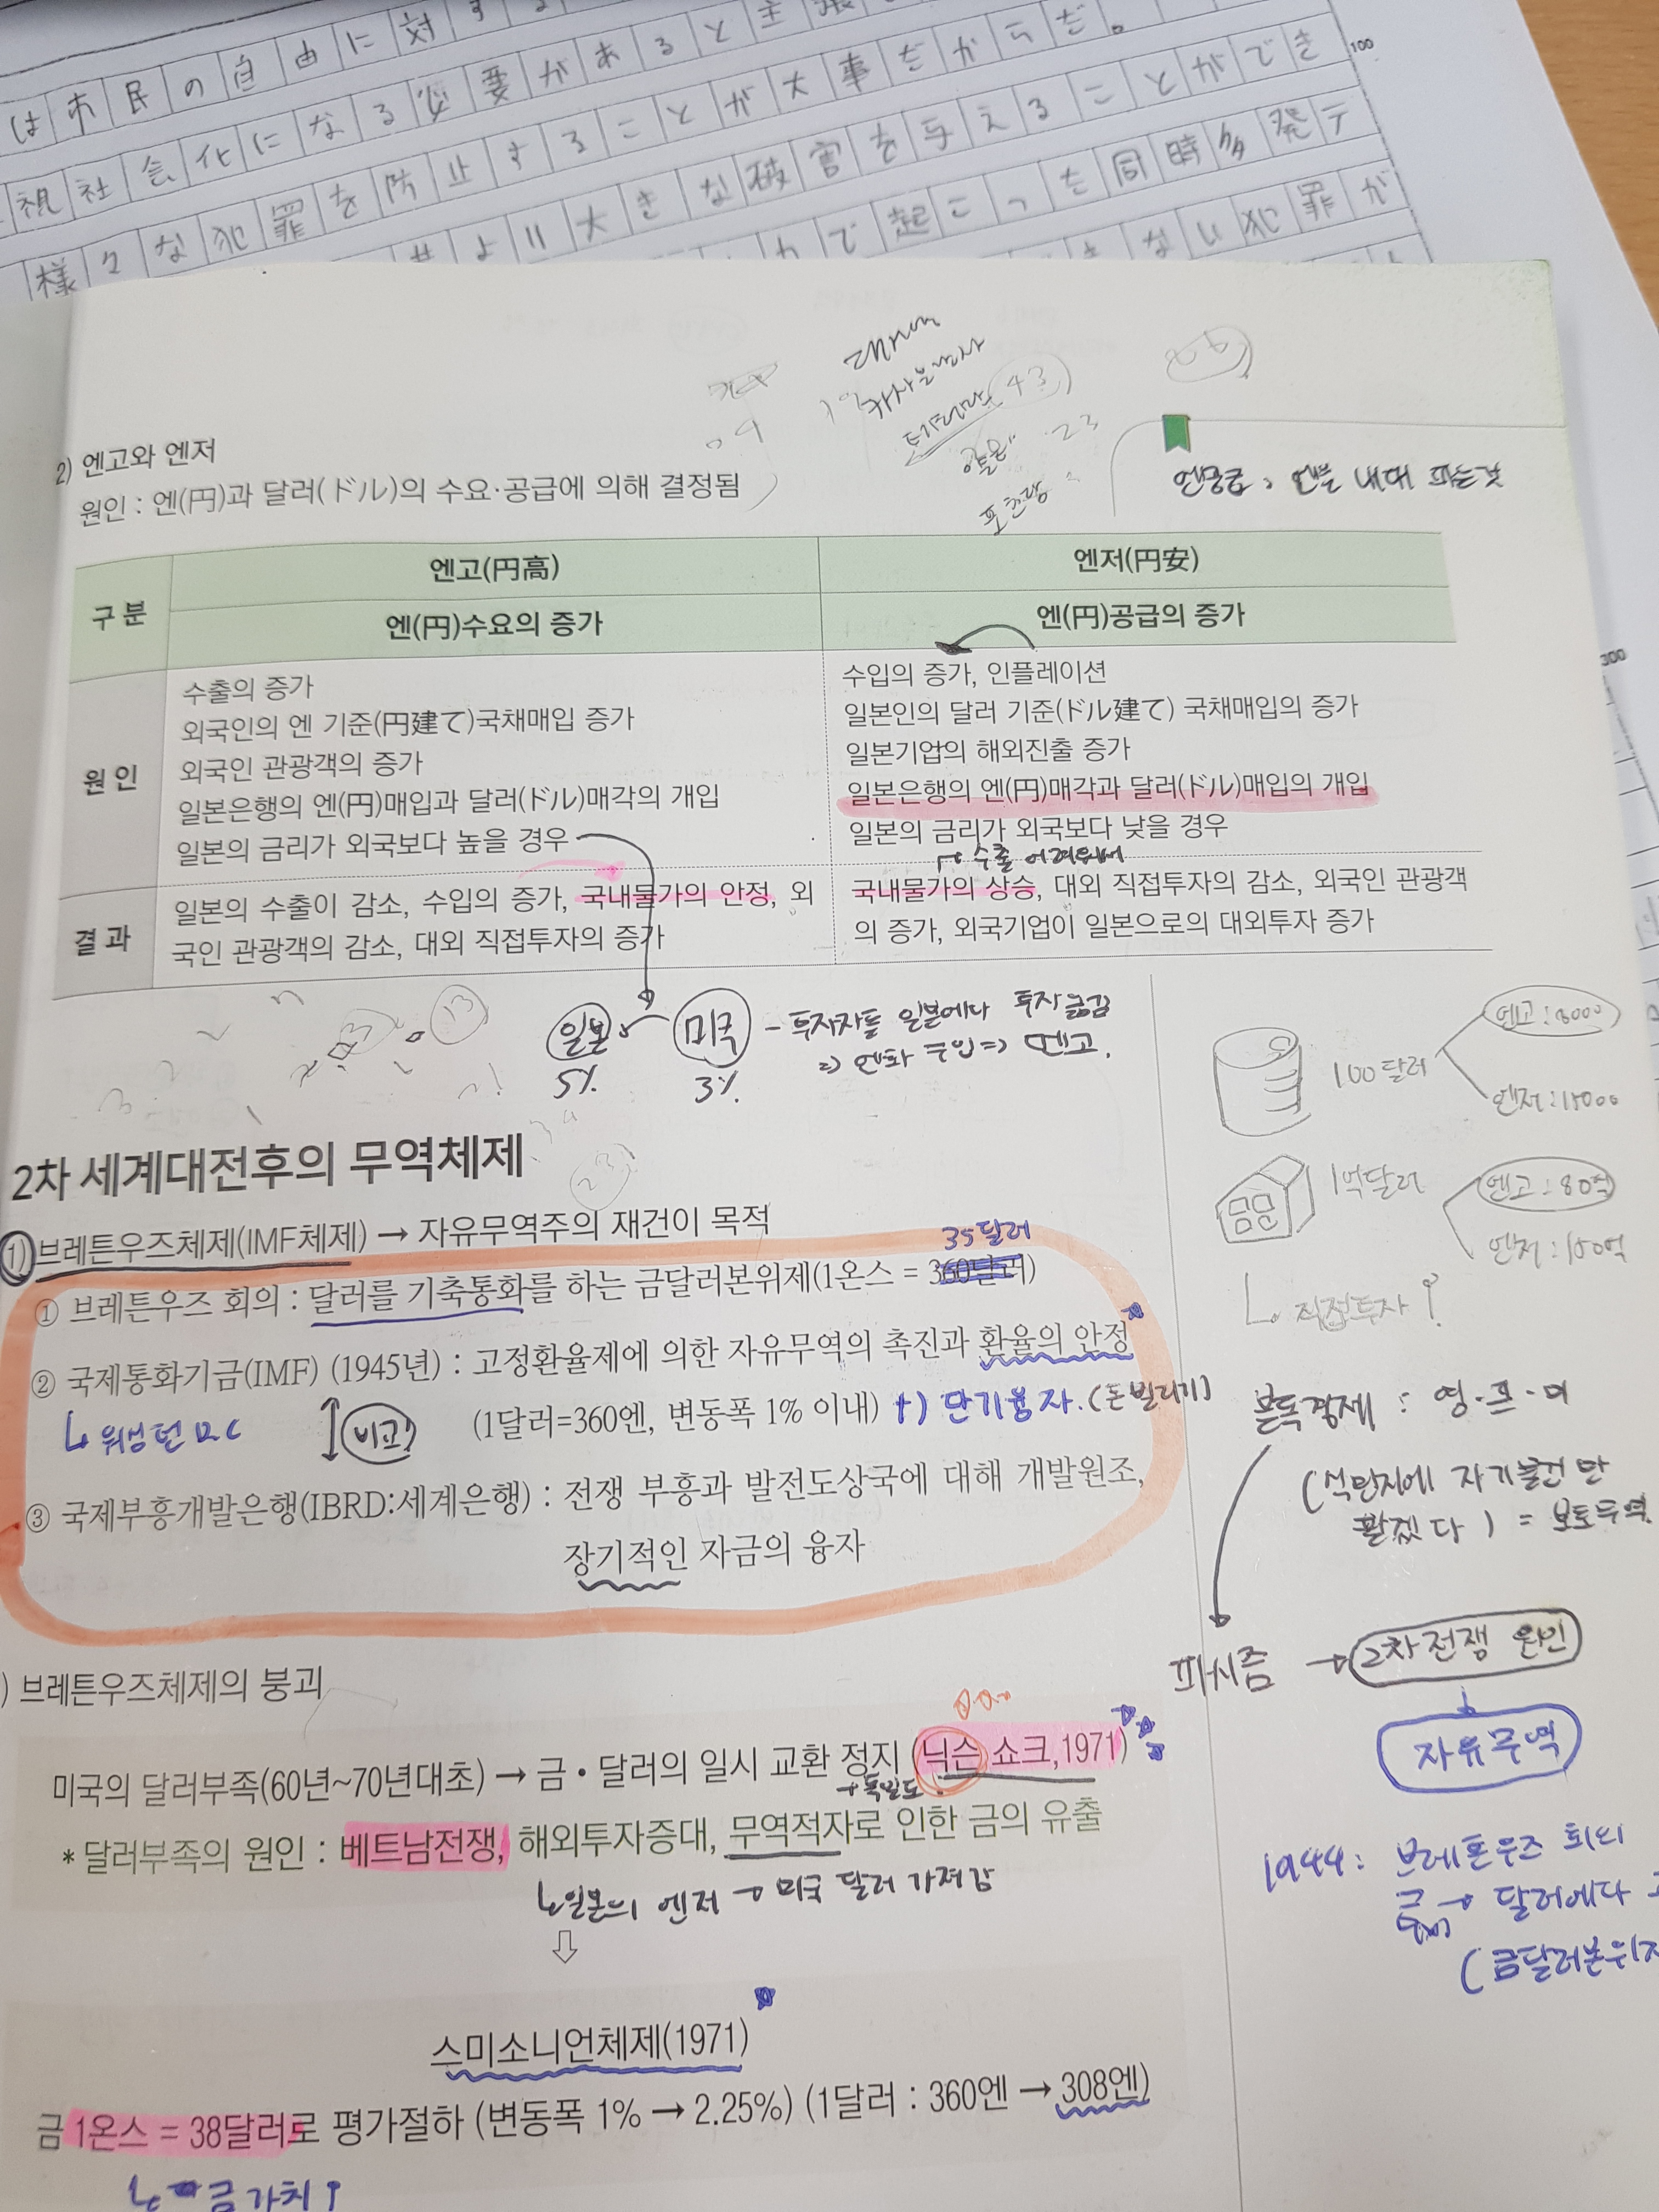 は市民の自由に対する
視社会化になる必要があると主張
様々な犯罪を防止することが大事だからだ。
大きな破害を与えることができ
で起こった同時多発テ
ない犯罪が
100
300
2) 엔고와 엔저
원인 : 엔(円)과 달러(ドル)의 수요·공급에 의해 결정됨
엔공급 : 엔을 내대 파는것
43
23
구분
엔고(円高)
엔저(円安)
엔(円)수요의 증가
엔(円)공급의 증가
원인
수출의 증가
외국인의 엔 기준(円建て)국채매입 증가
외국인 관광객의 증가
일본은행의 엔(円)매입과 달러(ドル)매각의 개입
일본의 금리가 외국보다 높을 경우
수입의 증가, 인플레이션
일본인의 달러 기준(ドル建て) 국채매입의 증가
일본기업의 해외진출 증가
일본은행의 엔(円)매각과 달러(ドル)매입의 개입
일본의 금리가 외국보다 낮을 경우
수출 어려워서
결과
일본의 수출이 감소, 수입의 증가, 국내물가의 안정, 외
국인 관광객의 감소, 대외 직접투자의 증가
국내물가의 상승, 대외 직접투자의 감소, 외국인 관광객
의 증가, 외국기업이 일본으로의 대외투자 증가
13
일본 미국 - 투자자들 일본에다 투자 옮김
5% 3% ⇒ 엔화 구입 ⇒ 엔고.
100달러
엔고 : 8000
엔저 : 15000
금문
1억달러
엔고 : 80억
엔저 : 150억
↳ 직접투자 ↑
23
2차 세계대전후의 무역체제
1) 브레튼우즈체제(IMF체제) → 자유무역주의 재건이 목적
35달러
① 브레튼우즈 회의 : 달러를 기축통화를 하는 금달러본위제(1온스 = 360달러)
② 국제통화기금(IMF) (1945년) : 고정환율제에 의한 자유무역의 촉진과 환율의 안정
↳ 워싱턴 D.C 비교! (1달러=360엔, 변동폭 1% 이내) +) 단기융자. (돈빌리기)
③ 국제부흥개발은행(IBRD:세계은행) : 전쟁 부흥과 발전도상국에 대해 개발원조,
장기적인 자금의 융자
블록경제 : 영·프·미
(식민지에 자기물건만
팔겠다) = 보호무역
파시즘 → 2차전쟁 원인
자유무역
1944 : 브레튼우즈 회의
금 → 달러에다
(금달러본위
) 브레튼우즈체제의 붕괴
미국의 달러부족(60년~70년대초) → 금·달러의 일시 교환 정지 (닉슨 쇼크,1971)
+독일도
*달러부족의 원인 : 베트남전쟁, 해외투자증대, 무역적자로 인한 금의 유출
↳일본의 엔저 → 미국 달러 가져감
⇩
스미소니언체제(1971)
금 1온스 = 38달러로 평가절하 (변동폭 1% → 2.25%) (1달러 : 360엔 → 308엔)
↳ 금가치 ↑